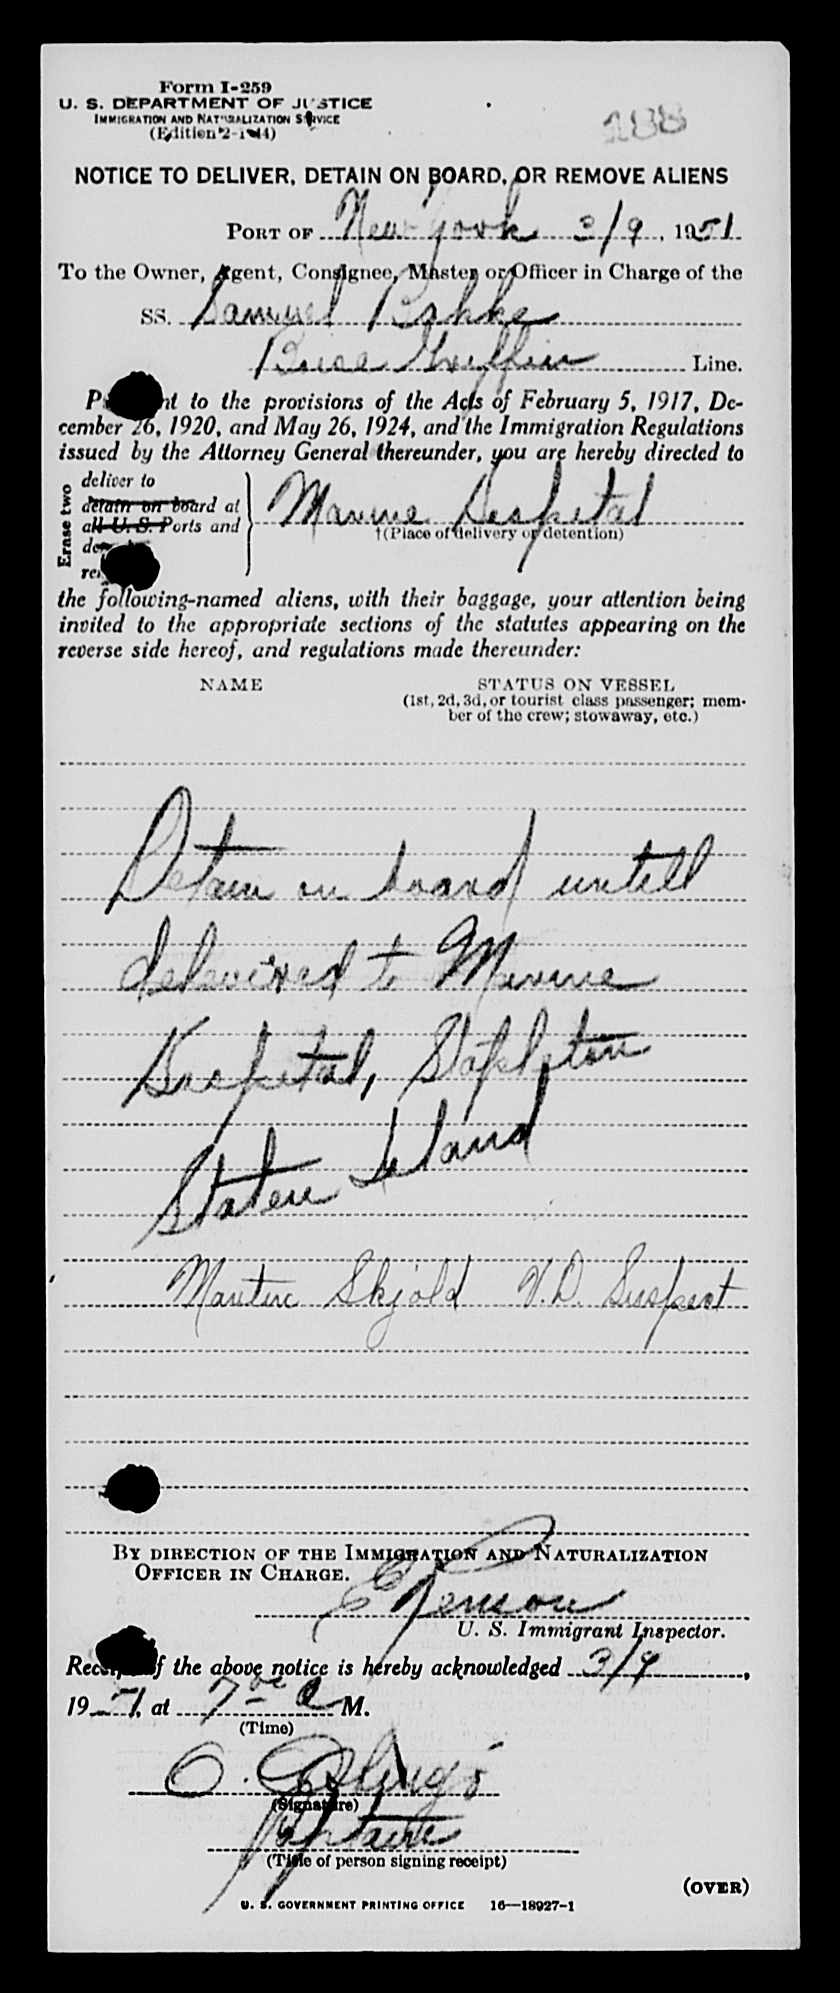 Form I-259
U. S. DEPARTMENT OF JUSTICE
IMMIGRATION AND NATURALIZATION SERVICE
(Edition 2-1-44)
188
NOTICE TO DELIVER, DETAIN ON BOARD, OR REMOVE ALIENS
PORT OF New York 3/9, 1951
To the Owner, Agent, Consignee, Master or Officer in Charge of the
SS. Samuel Bakke
Griffin Line.
Pursuant to the provisions of the Acts of February 5, 1917, De-
cember 26, 1920, and May 26, 1924, and the Immigration Regulations
issued by the Attorney General thereunder, you are hereby directed to
Erase two
deliver to
detain on board at
all U. S. Ports and
Marine Hospital
†(Place of delivery or detention)
the following-named aliens, with their baggage, your attention being
invited to the appropriate sections of the statutes appearing on the
reverse side hereof, and regulations made thereunder:
NAME STATUS ON VESSEL
(1st, 2d, 3d, or tourist class passenger; mem-
ber of the crew; stowaway, etc.)
Detain on board untill
delivered to Marine
Hospital, Stapleton
Staten Island
Martin Skjold V.D. Suspect
BY DIRECTION OF THE IMMIGRATION AND NATURALIZATION
OFFICER IN CHARGE.
U. S. Immigrant Inspector.
Receipt of the above notice is hereby acknowledged 3/9,
1951, at 7 00 A M.
(Time)
(Signature)
Captain
(Title of person signing receipt)
(OVER)
U. S. GOVERNMENT PRINTING OFFICE 16—18927-1